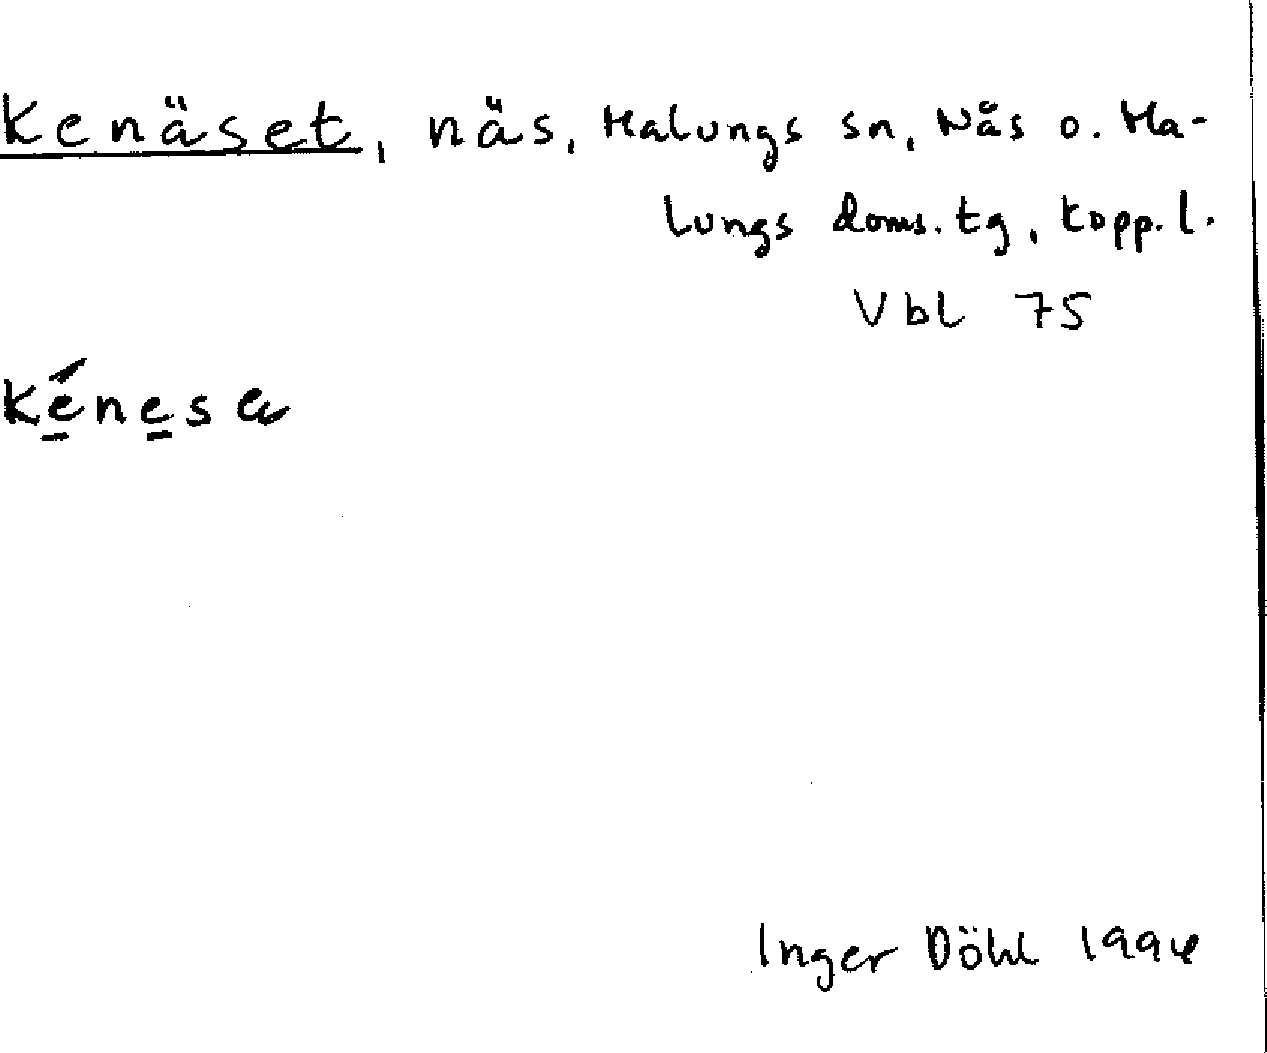 Kenäset, näs, Malungs sn, Nås o. Ma-
lungs doms.tg, Kopp.l.
Vbl 75
Ké̠ne̠sa
Inger Döhl 1994